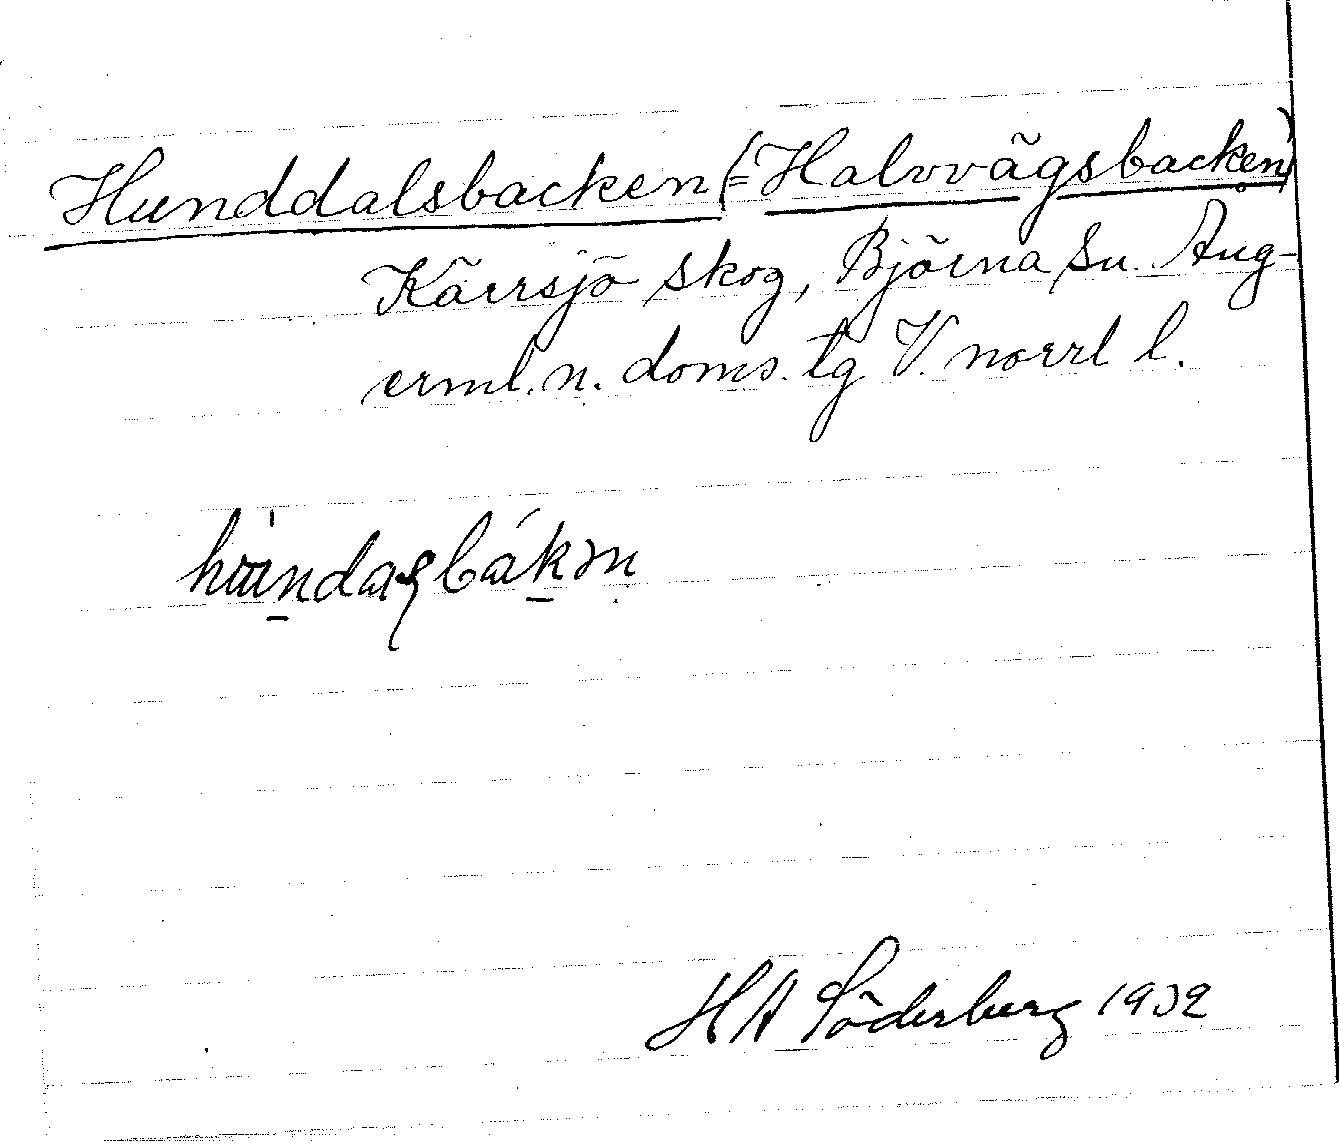 Hunddalsbacken (= Halvvägsbacken)
Kärrsjö skog, Björna sn. Ång-
erml. n. doms. tg V. norrl l.
H A Söderberg 1932